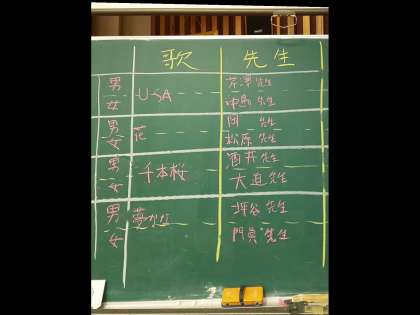 歌 先生
男 芹澤先生
女 USA 中島先生
男 岡 先生
女 花 松原先生
男 酒井先生
女 千本桜 大迫先生
男 坪谷先生
女 門真先生